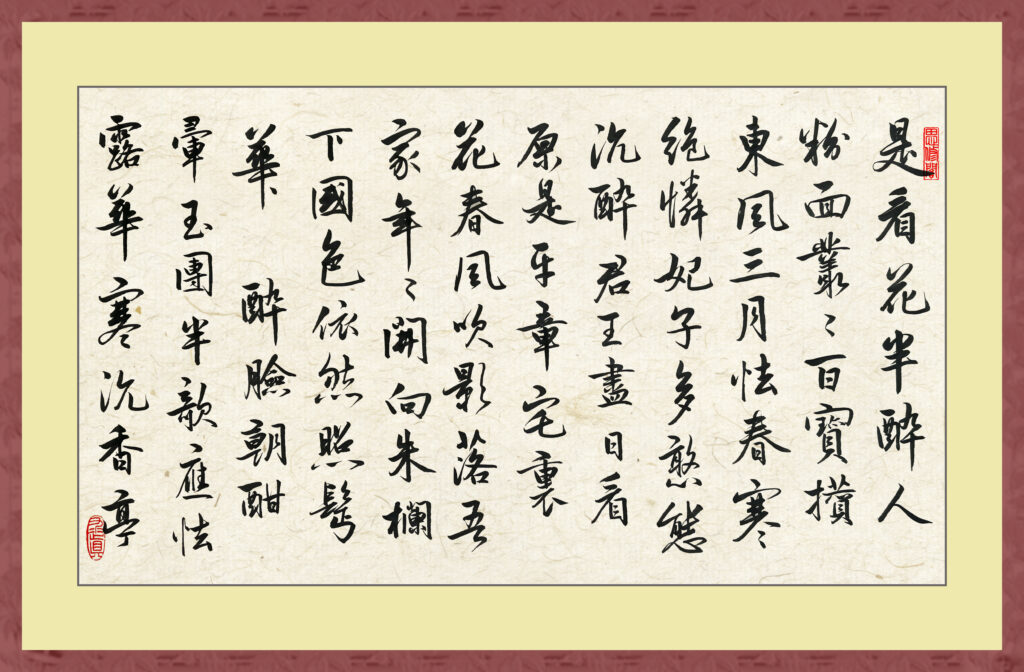 是看花半醉人
粉面叢〻百寶攢
東風三月怯春寒
絶憐妃子多憨態
沉醉君王盡日看
原是平章宅裏
花春風吹影落吾
家年〻開向朱欄
下國色依然照鬢
華 醉臉朝酣
暈玉團半欹應怯
露華寒沉香亭